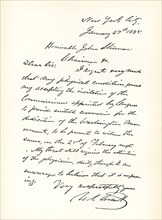 New York City,
January 27th 1885.
Honorable John Sherman
Chairman &c
Dear Sir: I regret very much
that my physical condition prevents
my accepting the invitation of the
Commission appointed by Congress
to provide suitable ceremonies for
the dedication of the Washington Monu-
ment, to be present to witness the
same, on the 21st of February next.
My throat still requires the attention
of the physician daily, though I am
encouraged to believe that it is improv-
ing.
Very respectfully yours
U. S. Grant